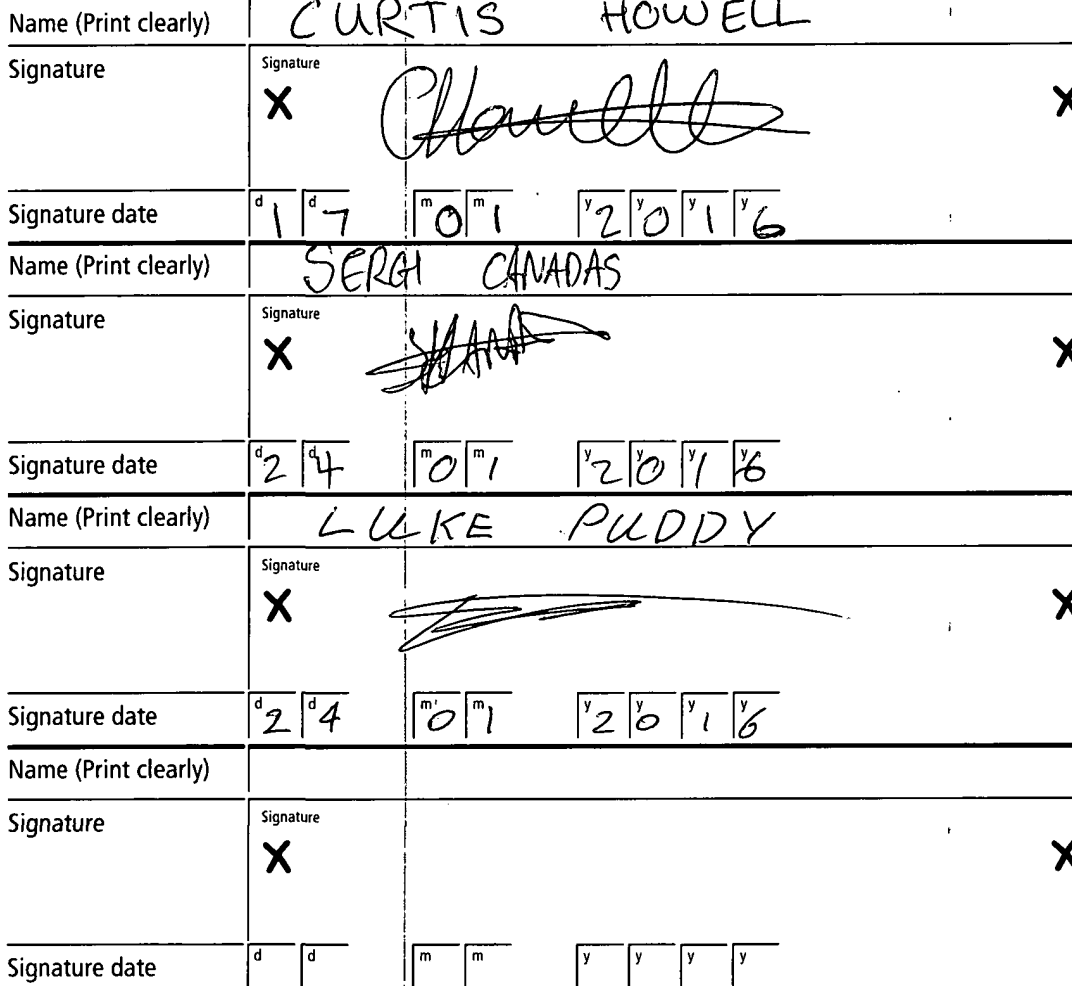 Name (Print clearly) CURTIS HOWELL
Signature Signature
X CHowell X
Signature date d1 d7 m0 m1 y2 y0 y1 y6
Name (Print clearly) SERGI CANADAS
Signature Signature
X X
Signature date d2 d4 m0 m1 y2 y0 y1 y6
Name (Print clearly) LUKE PUDDY
Signature Signature
X X
Signature date d2 d4 m0 m1 y2 y0 y1 y6
Name (Print clearly)
Signature Signature
X X
Signature date d d m m y y y y